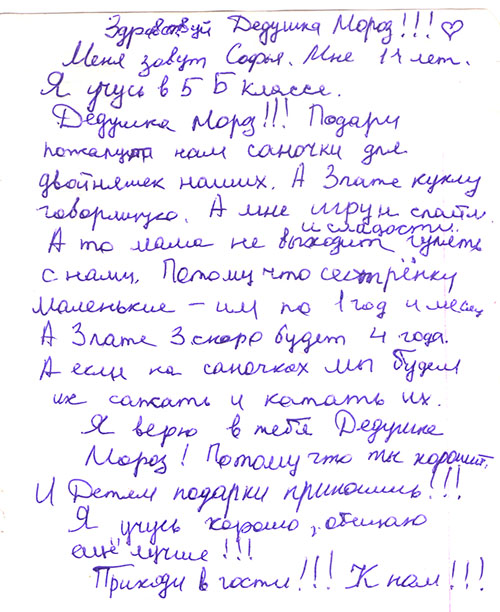 Здравствуй Дедушка Мороз!!! ♡
Меня зовут Софья. Мне 11 лет.
Я учусь в 5 Б классе.
Дедушка Мороз!!! Подари
пожалуйта нам саночки для
двойняшек наших. А Злате куклу
говорящую. А мне игрун слайм
и сладости.
А то мама не выходит гулять
с нами. Потому что сестрёнки
маленькие – им по 1 год и месяц
А Злате 3 скоро будет 4 года.
А если на саночках мы будем
их сажать и катать их.
Я верю в тебя Дедушка
Мороз! Потому что ты хороший,
И Детям подарки приносишь!!!
Я учусь хорошо, обещаю
ещё лучше!!!
Приходи в гости!!! К нам!!!